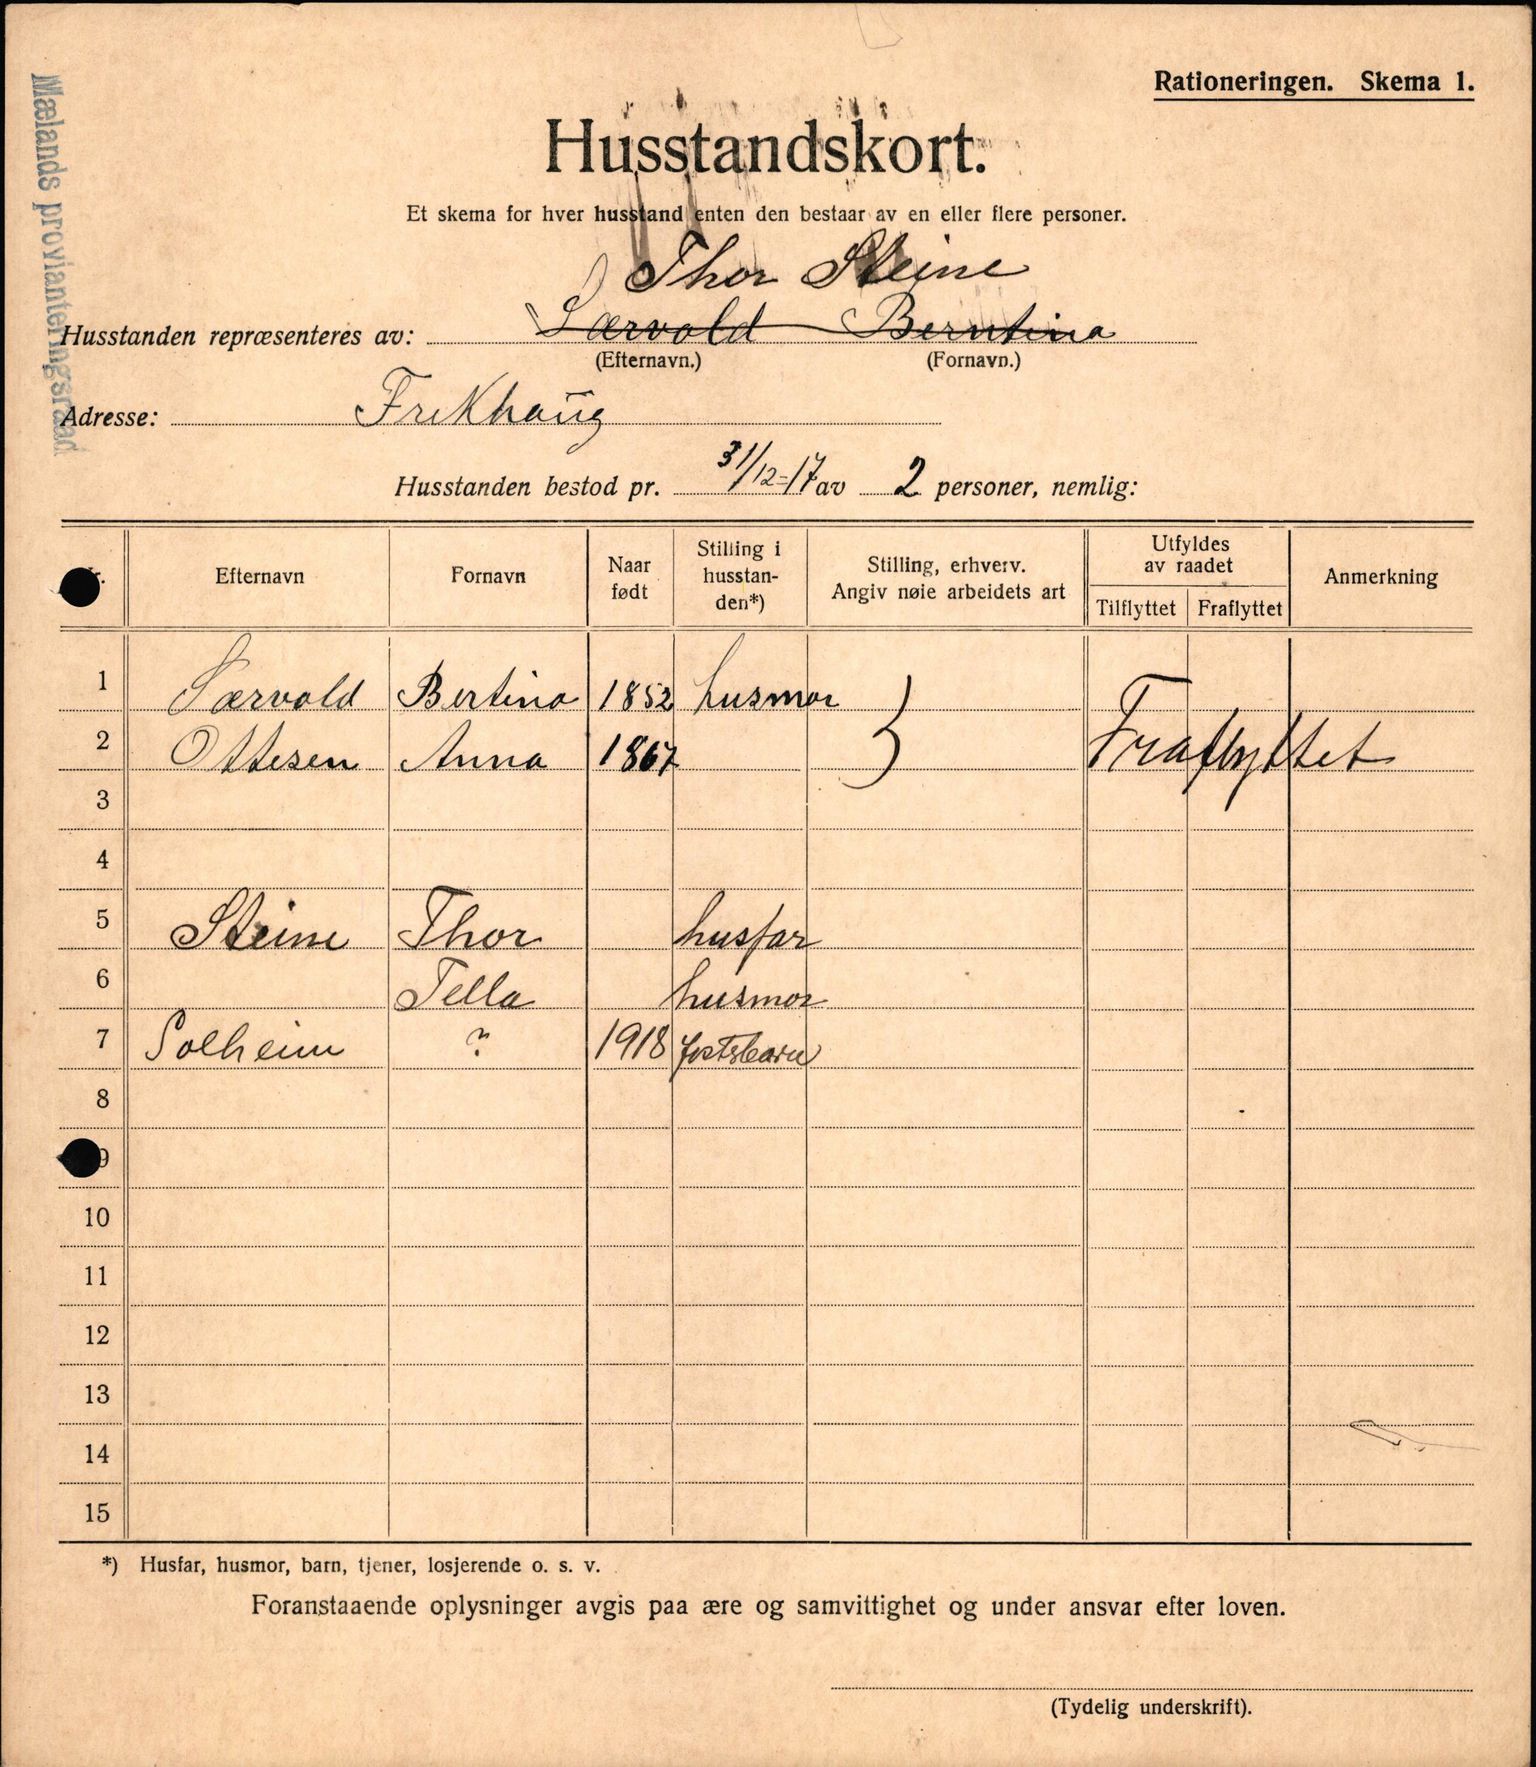 Mælands provianteringsraad
Rationeringen. Skema 1.
Husstandskort.
Et skema for hver husstand enten den bestaar av en eller flere personer.
Thor Steine
Husstanden repræsenteres av: Særvold Berntina
(Efternavn.) (Fornavn.)
Adresse: Frikhaug
Husstanden bestod pr. 31/12-17 av 2 personer, nemlig:
Efternavn Fornavn Naar født Stilling i husstan-den*) Stilling, erhverv. Angiv nøie arbeidets art Utfyldes av raadet Tilflyttet Fraflyttet Anmerkning
1 Særvold Bertina 1852 husmor
2 Ottesen Anna 1867 Fraflyttet
3
4
5 Steine Thor husfar
6 Tella husmor
7 Solheim ? 1918 fostsbarn
8
9
10
11
12
13
14
15
*) Husfar, husmor, barn, tjener, losjerende o. s. v.
Foranstaaende oplysninger avgis paa ære og samvittighet og under ansvar efter loven.
(Tydelig underskrift).